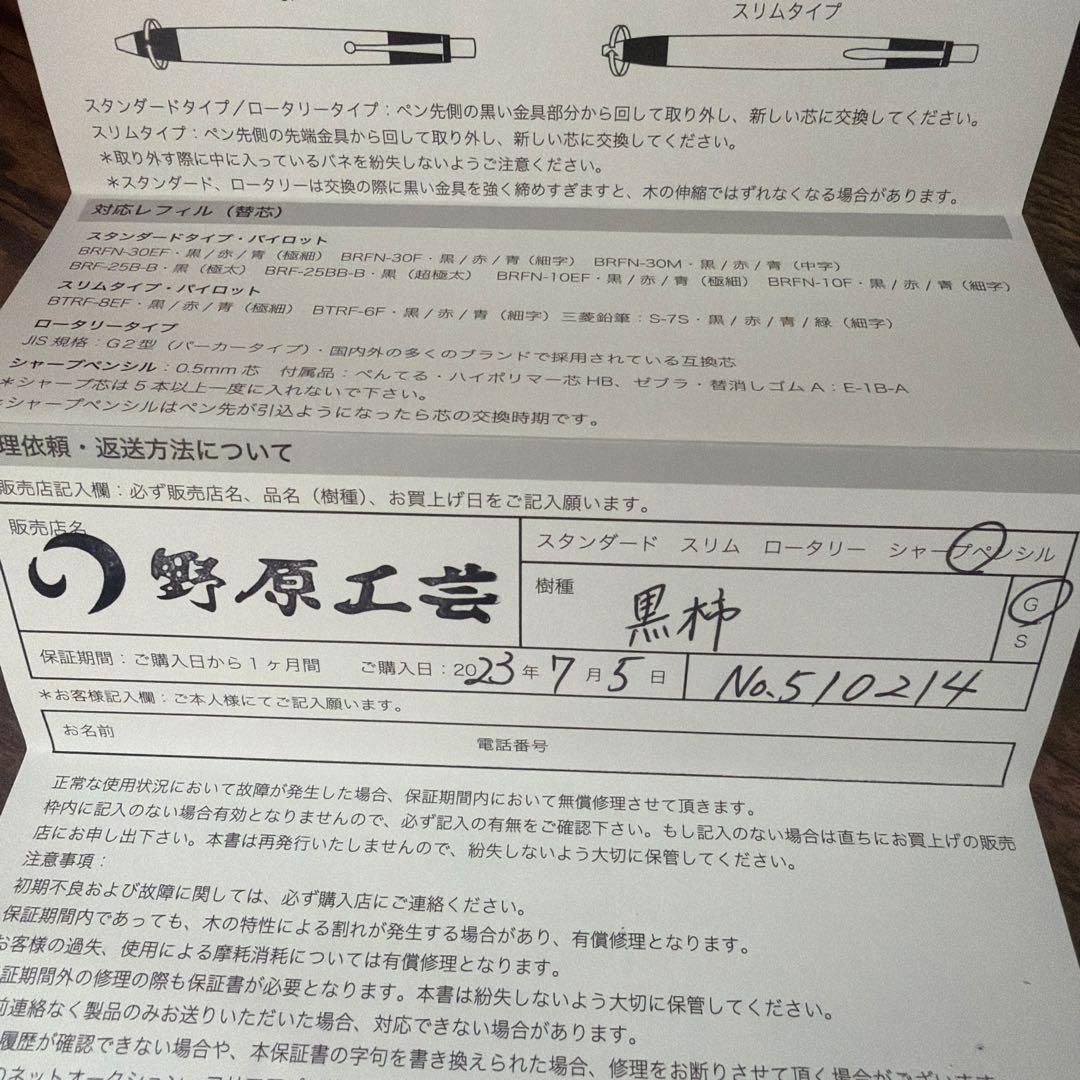 スリムタイプ
スタンダードタイプ/ロータリータイプ：ペン先側の黒い金具部分から回して取り外し、新しい芯に交換してください。
スリムタイプ：ペン先側の先端金具から回して取り外し、新しい芯に交換してください。
＊取り外す際に中に入っているバネを紛失しないようご注意ください。
＊スタンダード、ロータリーは交換の際に黒い金具を強く締めすぎますと、木の伸縮ではずれなくなる場合があります。
対応レフィル（替芯）
スタンダードタイプ・パイロット
BRFN-30EF・黒/赤/青（極細） BRFN-30F・黒/赤/青（細字） BRFN-30M・黒/赤/青（中字）
BRF-25B-B・黒（極太） BRF-25BB-B・黒（超極太） BRFN-10EF・黒/赤/青（極細） BRFN-10F・黒/赤/青（細字）
スリムタイプ・パイロット
BTRF-8EF・黒/赤/青（極細） BTRF-6F・黒/赤/青（細字）三菱鉛筆：S-7S・黒/赤/青/緑（細字）
ロータリータイプ
JIS規格：G2型（パーカータイプ）・国内外の多くのブランドで採用されている互換芯
シャープペンシル：0.5mm芯 付属品：ぺんてる・ハイポリマー芯HB、ゼブラ・替消しゴムA：E-1B-A
＊シャープ芯は5本以上一度に入れないで下さい。
＊シャープペンシルはペン先が引込ようになったら芯の交換時期です。
理依頼・返送方法について
販売店記入欄：必ず販売店名、品名（樹種）、お買上げ日をご記入願います。
販売店名
野原工芸
スタンダード スリム ロータリー シャープペンシル
樹種 黒柿
G
S
保証期間：ご購入日から1ヶ月間 ご購入日：2023年7月5日 No.510214
＊お客様記入欄：ご本人様にてご記入願います。
お名前 電話番号
正常な使用状況において故障が発生した場合、保証期間内において無償修理させて頂きます。
枠内に記入のない場合有効となりませんので、必ず記入の有無をご確認下さい。もし記入のない場合は直ちにお買上げの販売
店にお申し出下さい。本書は再発行いたしませんので、紛失しないよう大切に保管してください。
注意事項：
初期不良および故障に関しては、必ず購入店にご連絡ください。
保証期間内であっても、木の特性による割れが発生する場合があり、有償修理となります。
お客様の過失、使用による摩耗消耗については有償修理となります。
証期間外の修理の際も保証書が必要となります。本書は紛失しないよう大切に保管してください。
前連絡なく製品のみお送りいただいた場合、対応できない場合があります。
履歴が確認できない場合や、本保証書の字句を書き換えられた場合、修理をお断りさせて頂く場合がございます